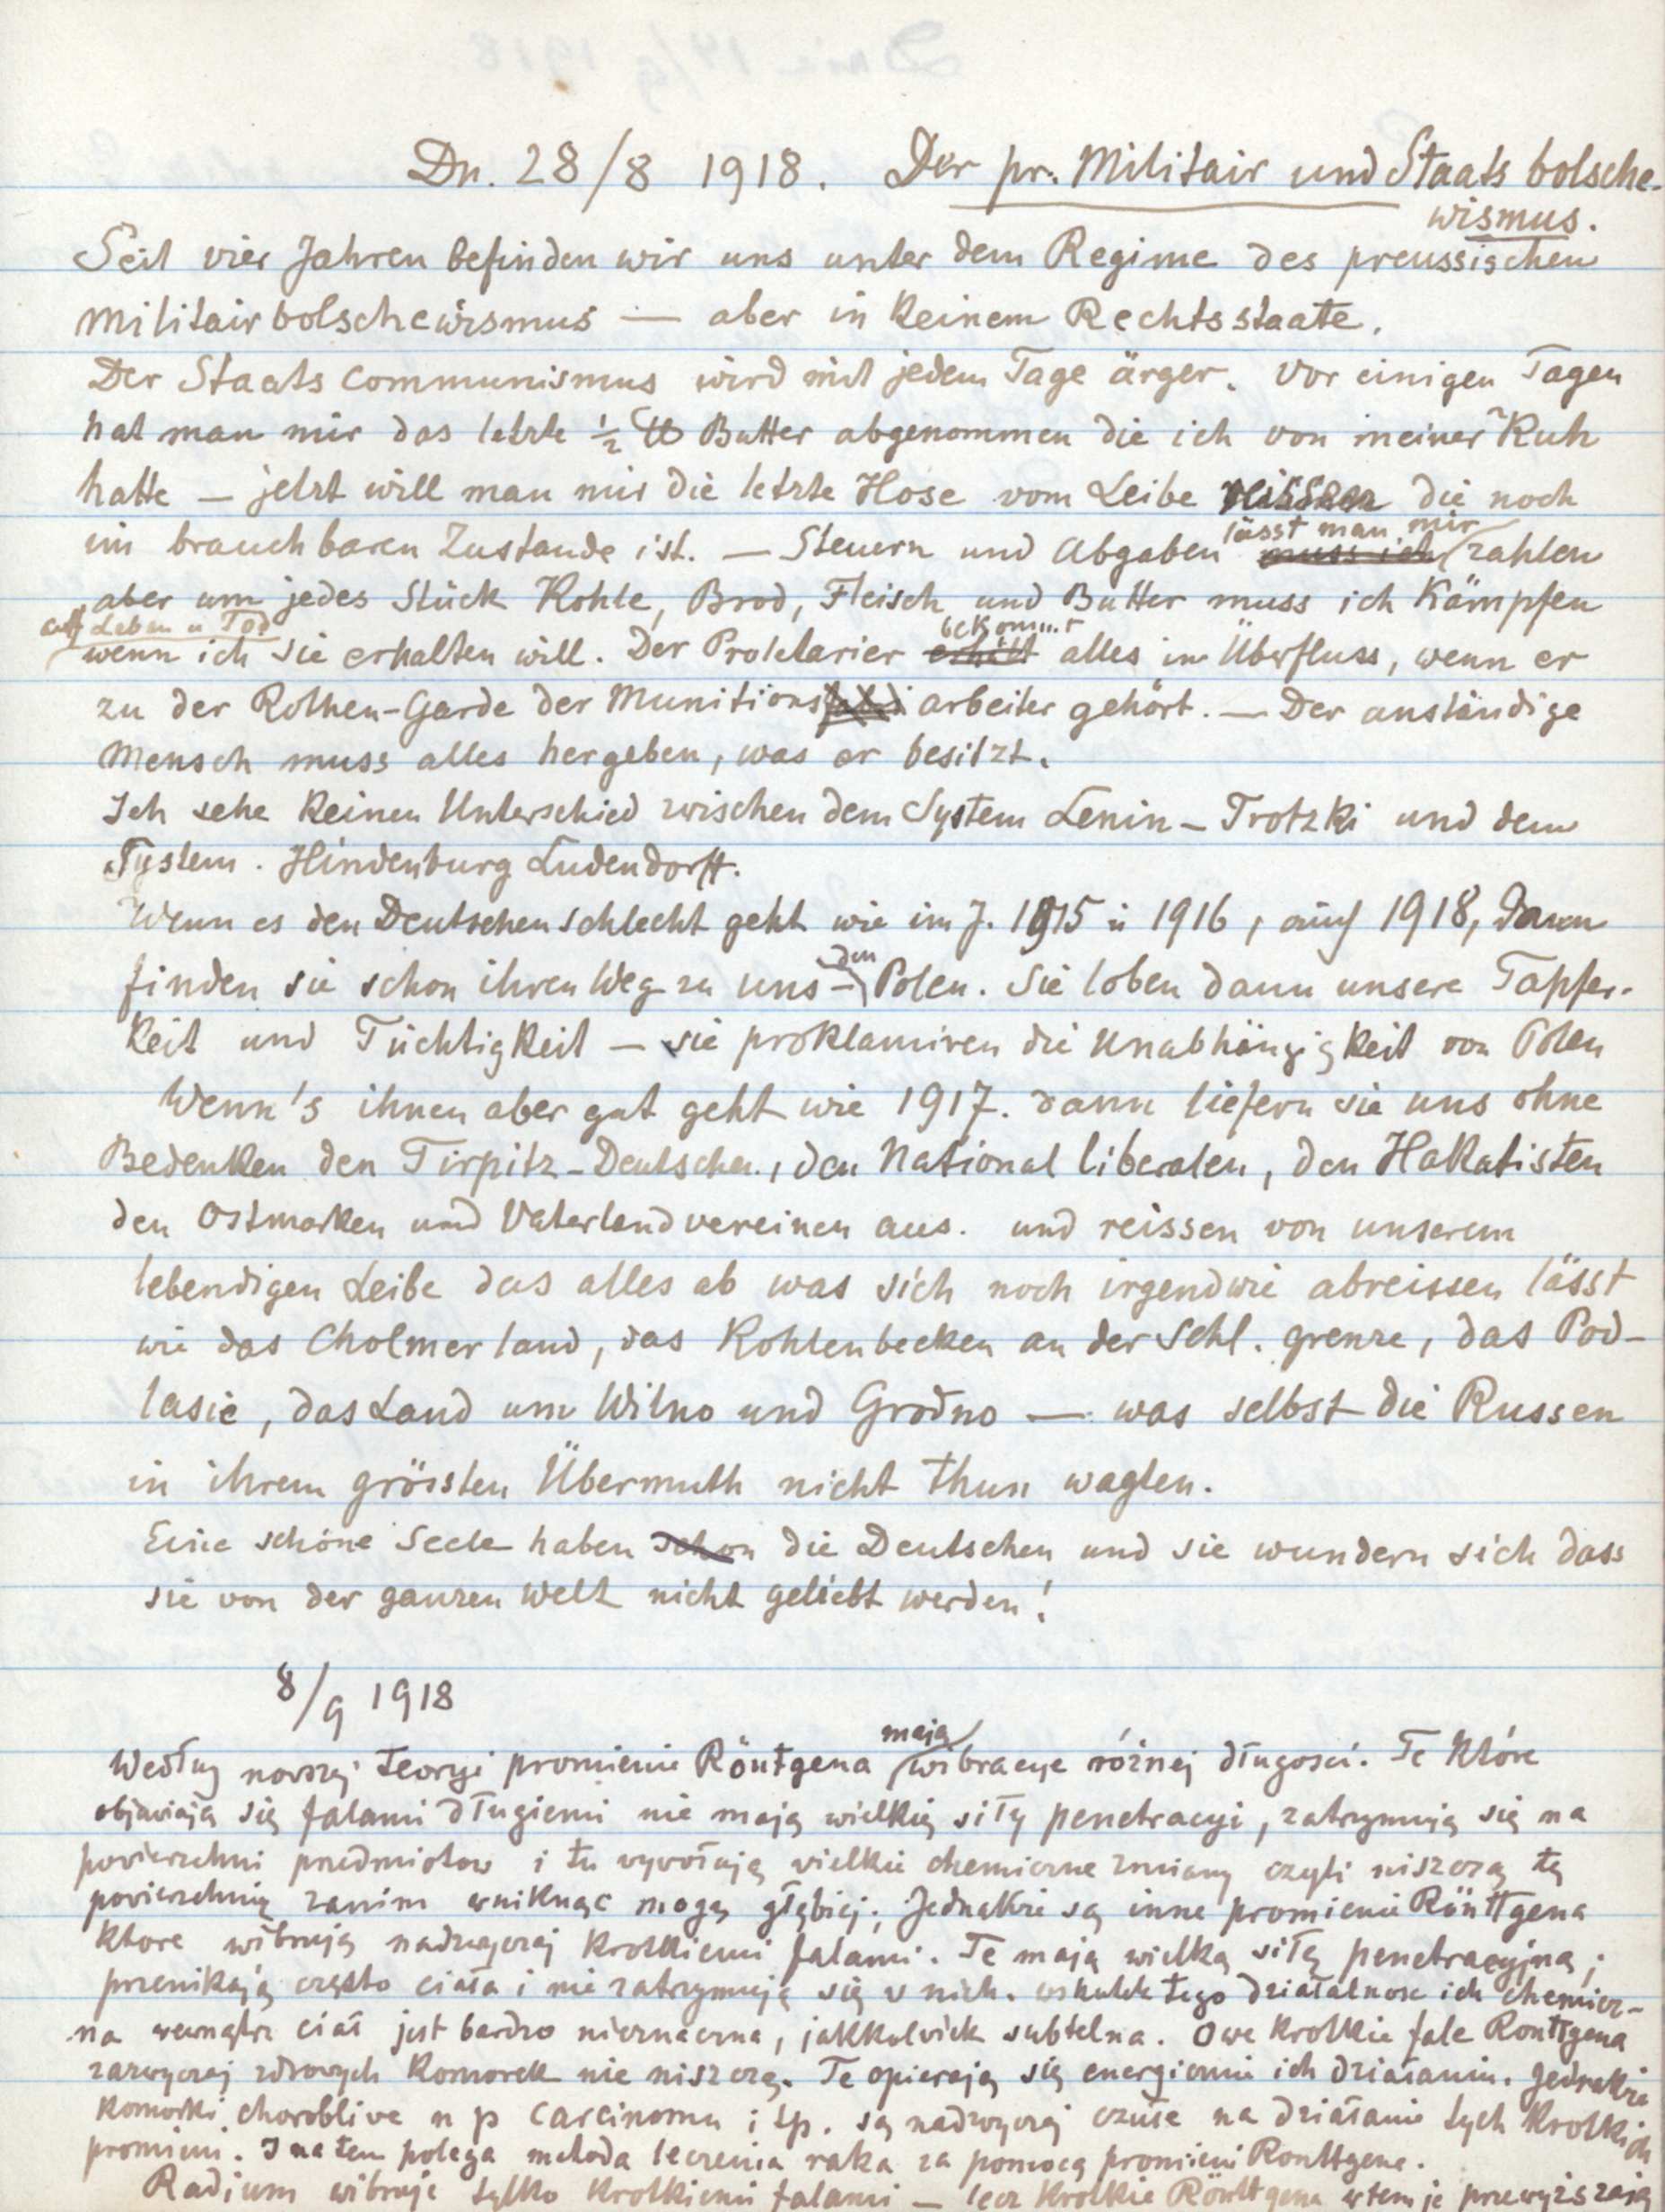 Dn. 28/8 1918. Der pr. Militair und Staats bolsche-
wismus.
Seit vier Jahren befinden wir uns unter dem Regime des preussischen
Militairbolschewismus — aber in keinem Rechtsstaate.
Der Staats communismus wird mit jedem Tage ärger. Vor einigen Tagen
hat man mir das letzte ½ ℔ Butter abgenommen die ich von meiner Kuh
hatte — jetzt will man mir die letzte Hose vom Leibe reissen die noch
im brauchbaren Zustande ist. — Steuern und Abgaben muss ich lässt man mir zahlen
aber um jedes Stück Kohle, Brod, Fleisch und Butter muss ich kämpfen
auf Leben u Tod
wenn ich sie erhalten will. Der Proletarier erhält bekommt alles im Überfluss, wenn er
zu der Rothen-Garde der Munitions arbeiter gehört. — Der anständige
Mensch muss alles hergeben, was er besitzt.
Ich sehe keinen Unterschied zwischen dem System Lenin – Trotzki und dem
System. Hindenburg Ludendorff.
Wenn es den Deutschen schlecht geht wie im J. 1915 u 1916, auch 1918, dann
finden sie schon ihren Weg zu uns – den Polen. Sie loben dann unsere Tapfer-
keit und Tüchtigkeit — sie proklamiren die Unabhängigkeit von Polen
Wenn's ihnen aber gut geht wie 1917. dann liefern sie uns ohne
Bedenken den Tirpitz-Deutschen, den National liberalen, den Hakatisten
den Ostmarken und Vaterlandvereinen aus. und reissen von unserem
lebendigen Leibe das alles ab was sich noch irgendwie abreissen lässt
wie das Cholmerland, das Kohlenbecken an der Schl. grenze, das Pod-
lasie, das Land um Wilno und Grodno — was selbst die Russen
in ihrem grössten Übermuth nicht thun wagten.
Eine schöne Seele haben schon die Deutschen und sie wundern sich dass
sie von der ganzen Welt nicht geliebt werden!
8/9 1918
Według nowszej teoryi promienie Röntgena mają wibracye różnej długości. Te które
objawiają się falami długiemi nie mają wielkiej siły penetracyi, zatrzymują się na
powierzchni przedmiotow i tu wywołują wielkie chemiczne zmiany czyli niszczą tę
powierzchnię zanim wniknąc mogą głębiej; Jednakże są inne promienie Rönttgena
ktore wibrują nadzwyczaj krotkiemi falami. Te mają wielką siłę penetracyjną;
przenikają często ciała i nie zatrzymują się w nich. wskutek tego działalnosc ich chemicz-
na wewnątrz ciał jest bardzo nieznaczna, jakkolwiek subtelna. Owe krotkie fale Ronttgena
zazwyczaj zdrowych komorek nie niszczą. Te opierają się energicznie ich działaniu. Jednakże
komorki chorobliwe n p carcinomu i tp. są nadzwyczaj czułe na działanie tych krotkich
promieni. I na tem polega metoda leczenia raka za pomocą promieni Ronttgena.
Radium wibruje tylko krotkiemi falami — lecz krotkie Rönttgena w tem je przewyższają